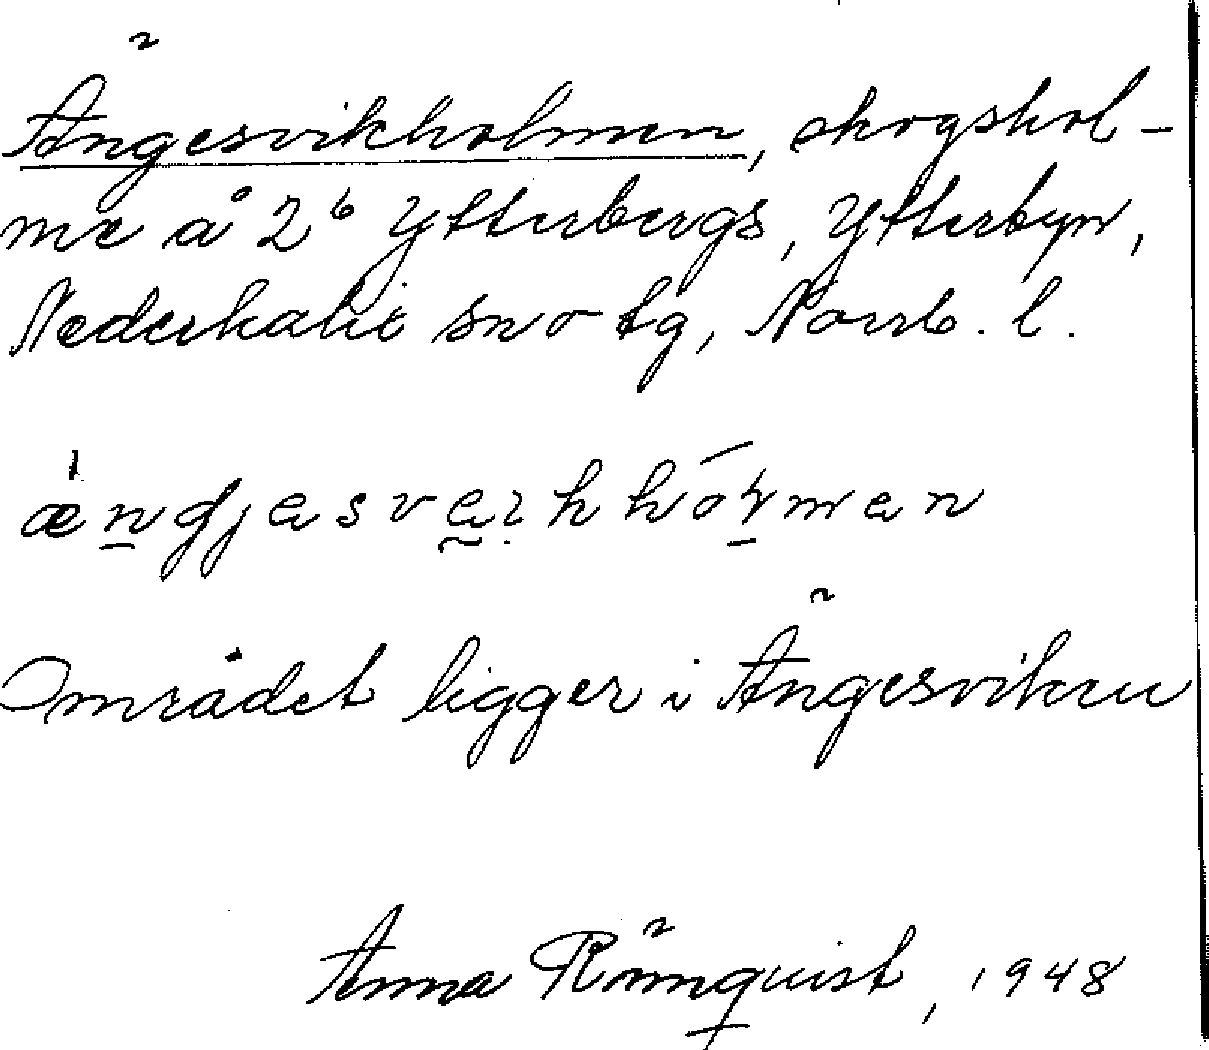 Ängesvikholmen, skogshol-
me å 2⁶ Ytterbergs, Ytterbyn,
Nederkalix sn o tg, Norrb. l.
Området ligger i Ängesviken
Anna Rönnquist, 1948